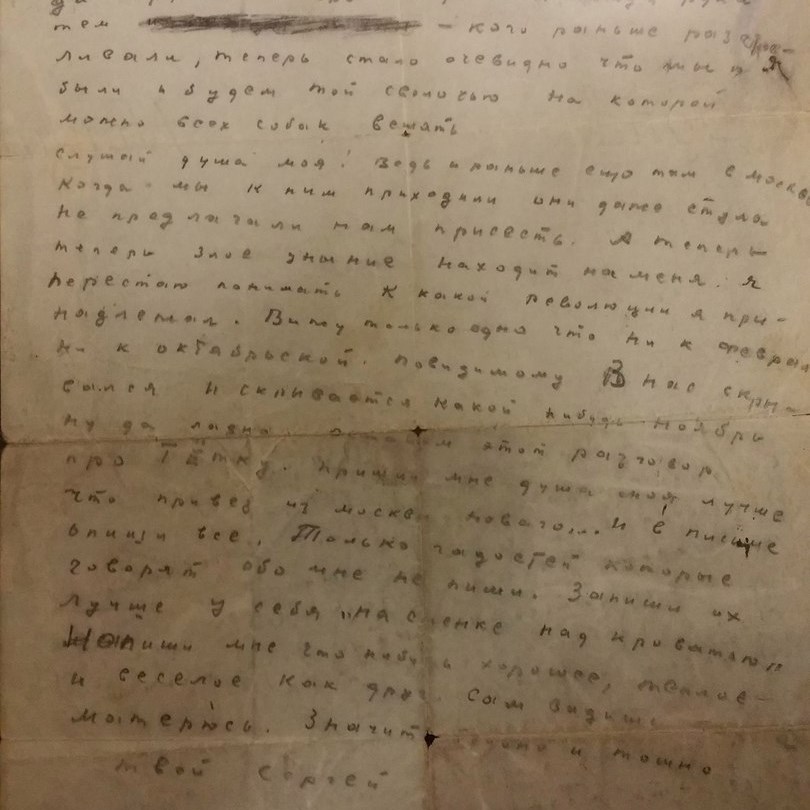 тем — кого раньше расстре-
ливали, теперь стало очевидно что мы и
были и будем той сволочью на которой
можно всех собак вешать
слушай душа моя! Ведь и раньше ещо там в москве
когда мы к ним приходили они даже стула
не предлагали нам присесть. А теперь
теперь злое уныние находит на меня. Я
перестаю понимать к какой революции я при-
надлежал. Вижу только одно что ни к февральс
ни к октябрьской. повидимому в нас скры-
вался и скрывается какой нибудь ноябрь
ну да ладно оставим этот разговор
про Тётку. пришли мне душа моя лучше
что привез из москвы нового... И в письме
опиши все. Только гадостей которые
говорят обо мне не пиши. Запиши их
лучше у себя "на стенке над кроватью"
Напиши мне что нибудь хорошее, теплое
и веселое как друг. сам видишь
матерюсь. Значит и тошно
твой Сергей